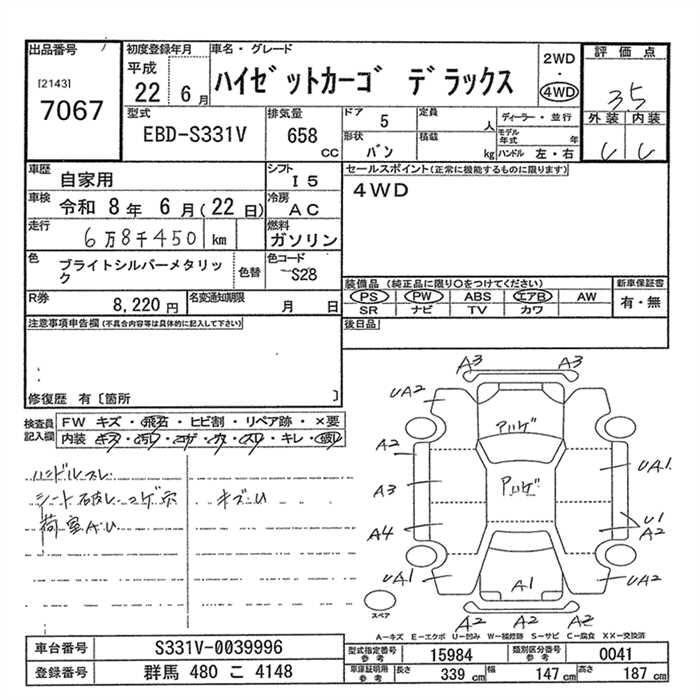 出品番号
[2143]
7067
初度登録年月
平成
22 6 月
車名・グレード
ハイゼットカーゴ デラックス
2WD
・
4WD
評価点
3.5
外装 内装
型式
EBD-S331V
排気量
658 cc
ドア 5
形状 バン
定員 人
積載 kg
ディーラー・並行
モデル年式 年
ハンドル 左・右
車歴 自家用
シフト I5
車検 令和 8年 6月(22日)
冷房 AC
走行 6万8千450 km
燃料 ガソリン
色 ブライトシルバーメタリック
色替
色コード S28
R券 8,220円
名変通知期限 月 日
セールスポイント(正常に機能するものに限ります)
4WD
装備品(純正品に限り○をつけてください)
PS PW ABS エアB AW
SR ナビ TV カワ
新車保証書
有・無
後日品
注意事項申告欄(不具合内容等は具体的に記入して下さい)
修復歴 有〔箇所 〕
検査員記入欄
FW キズ・飛石・ヒビ割・リペア跡・×要
内装 キズ・汚れ・コゲ・カ・スレ・キレ・破れ
ハンドルスレ
シート破レコゲ穴 キズU
荷室AU
A3 A3
UA2
アハゲ
A2
Pハゲ
UA1
A3
A4
U1
A2
UA1
UA2
A1
A2 A2 A2
スペア
A―キズ E―エクボ U―凹み W―補修跡 S―サビ C―腐食 XX―交換済
車台番号 S331V-0039996
登録番号 群馬 480 こ 4148
型式指定番号 参考 15984
類別区分番号 参考 0041
車庫証明用 参考 長さ 339 cm 幅 147 cm 高さ 187 cm